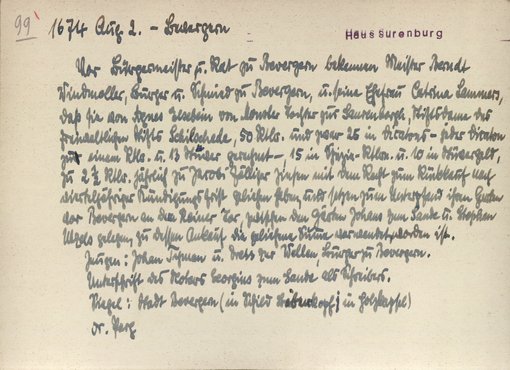 99 1674 Aug. 2. – Bevergern
Haus Surenburg
Vor Bürgermeister u. Rat zu Bevergern bekennen Meister Berndt
Windmoller, Bürger u. Schmied zu Bevergern, u. seine Ehefrau Catrina Lammers,
daß sie von Agnes Elsebein von Tochter zur Surenborgh, Stiftsdame des
freiweltlichen Stifts Schilschede, 50 Rtlr. und zwar 25 in Dicatons – jeder Dicaton
zu einem Rtlr. u. 13 Stüver gerechnet –, 15 in Spezie-Rtlrn u. 10 in Stüvergeld,
zu 2½ Rtlr. jährlich zu Jacobi fälliger Zinsen mit dem Recht zum Rückkauf nach
vierteljähriger Kündigungsfrist geliehen haben, und setzen zum Unterpfand ihren Garten
vor Bevergern an der Reiner Tor zwischen den Gärten Johans zum Sande u. Stephan
gelegen, zu dessen Ankauf die geliehene Summe verwendet worden ist.
Zeugen: Johan u. zur Wellen, Bürger zu Bevergern.
Unterschrift des Notars Georgius zum Sande als Schreibers.
Siegel: Stadt Bevergern (in Schild in Holzkapsel)
Or. Perg.